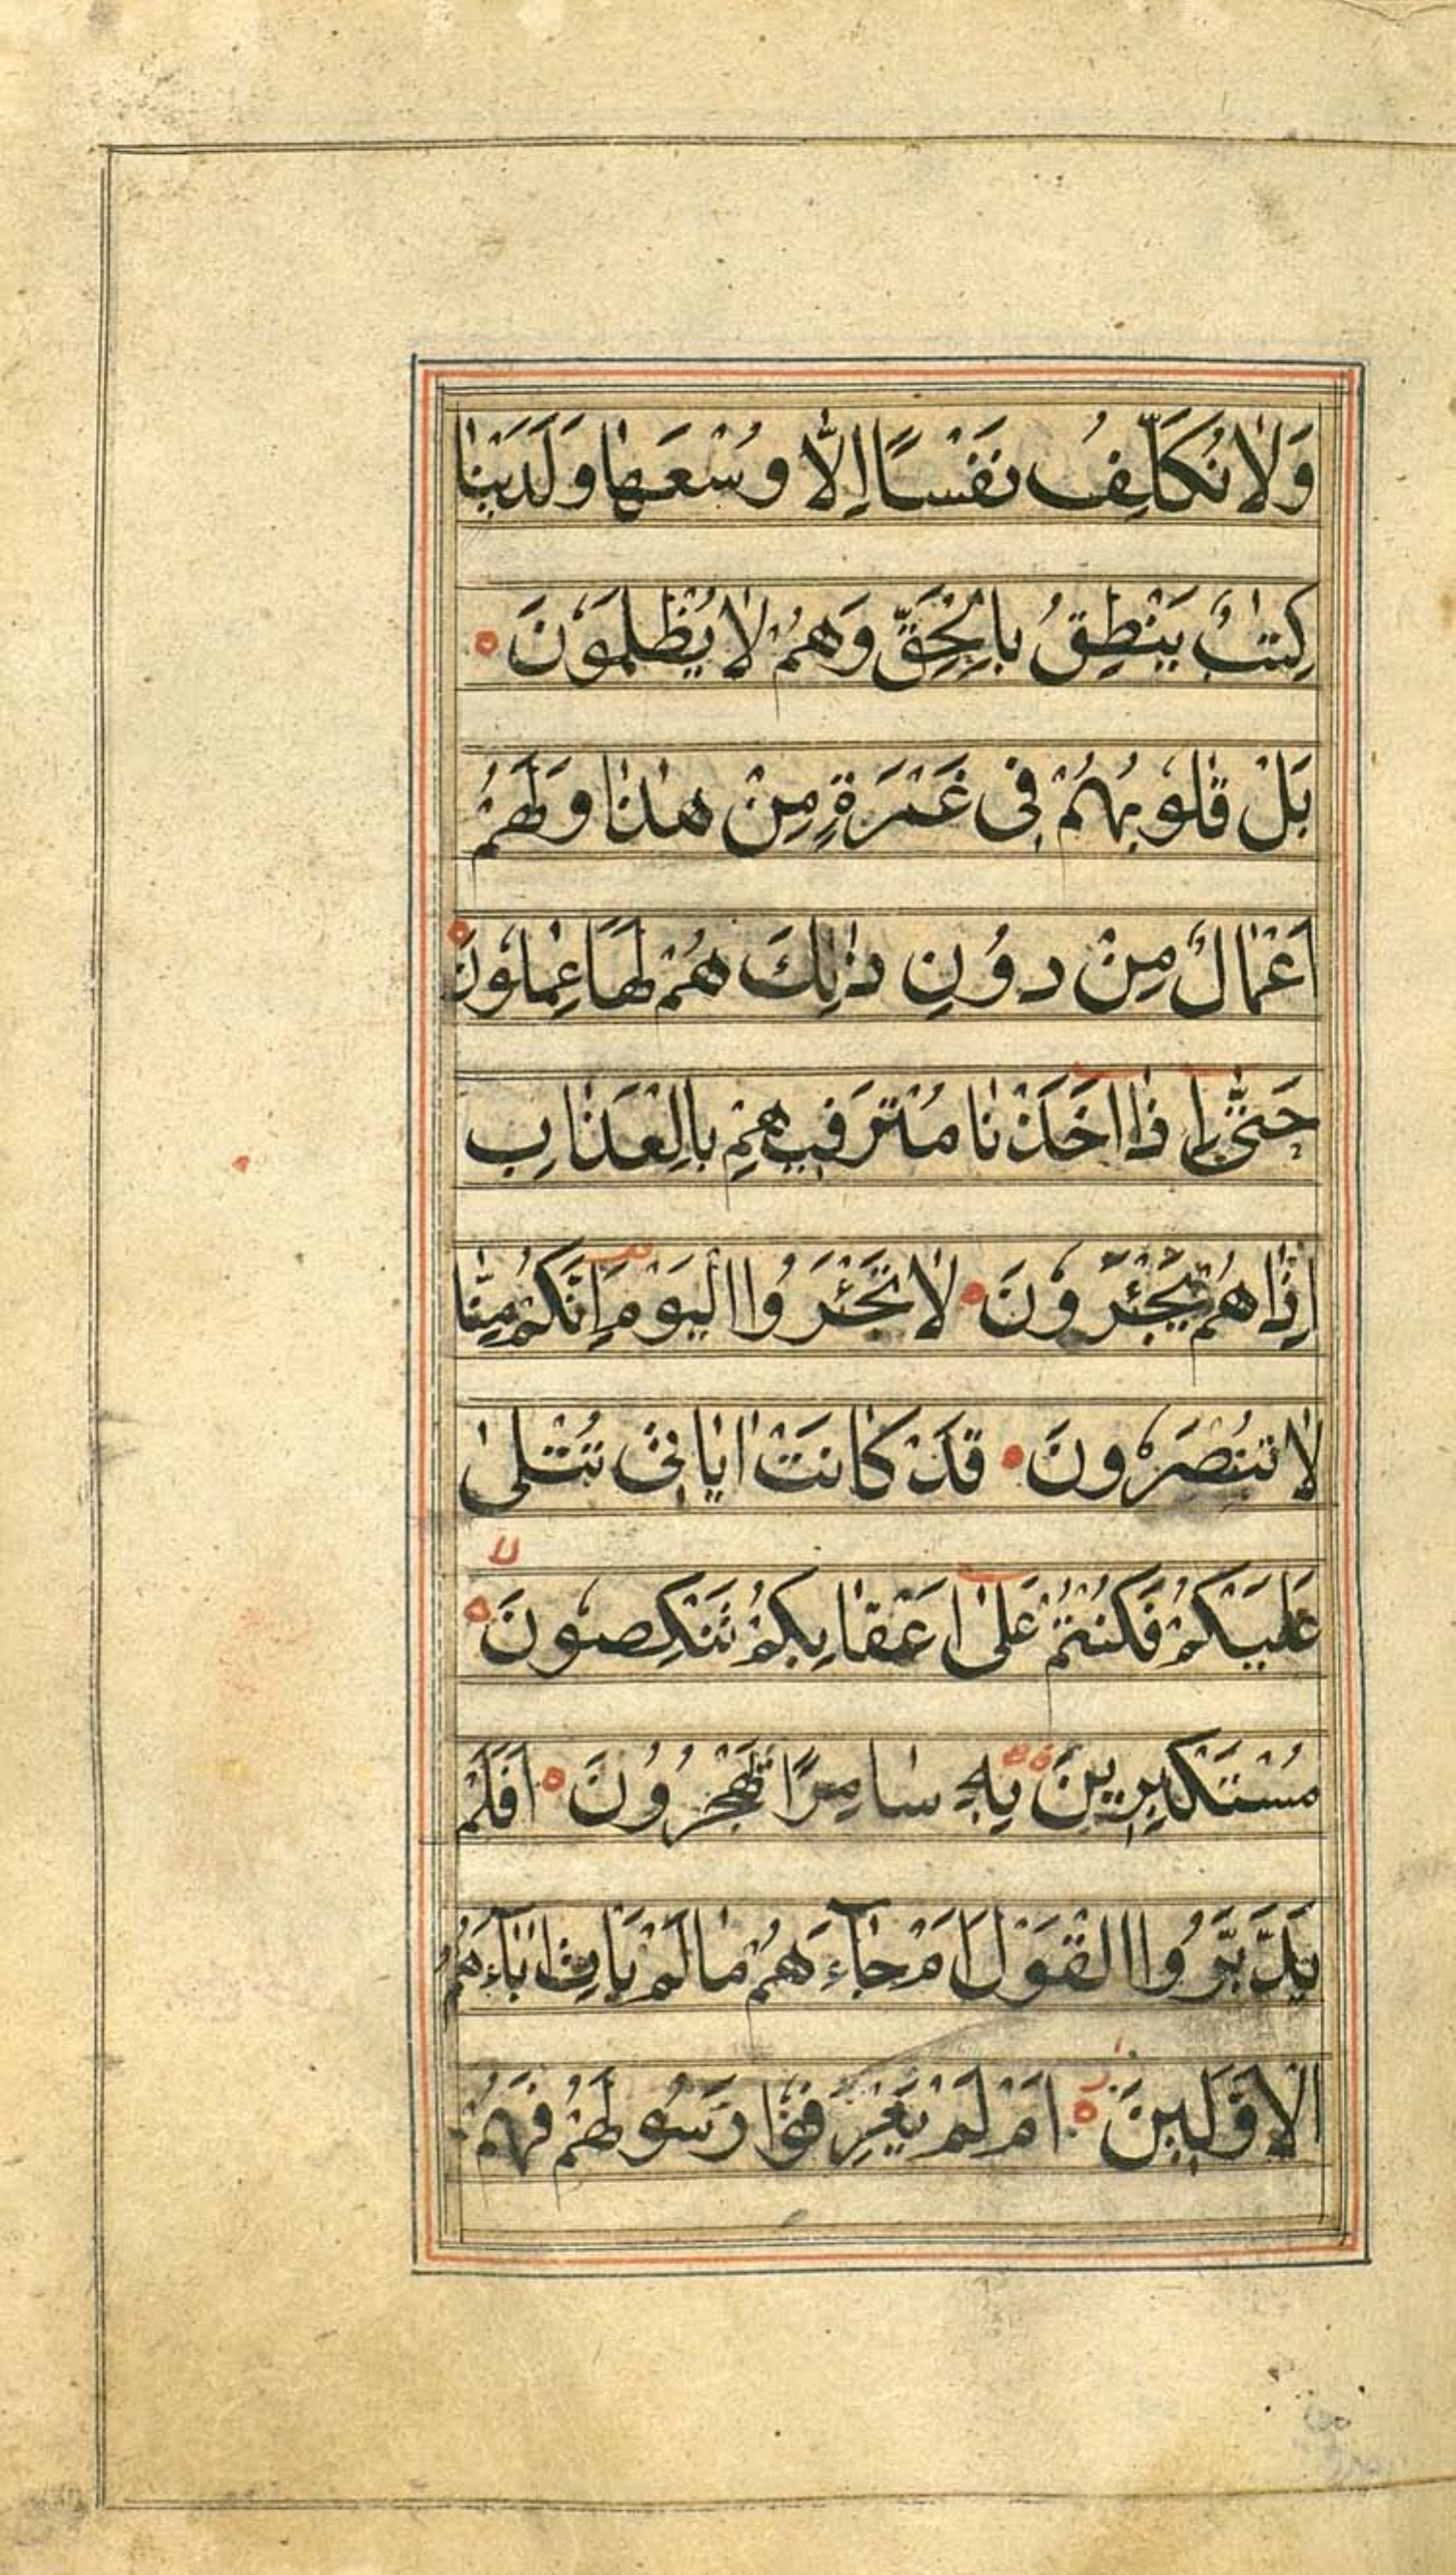 وَلَا نُكَلِّفُ نَفْسًا اِلَّا وُسْعَهَا وَلَدَيْنَا
كِتٰبٌ يَنْطِقُ بِالْحَقِّ وَهُمْ لَا يُظْلَمُوْنَ
بَلْ قُلُوْبُهُمْ فِى غَمْرَةٍ مِنْ هٰذَا وَلَهُمْ
اَعْمَالٌ مِنْ دُوْنِ ذٰلِكَ هُمْ لَهَا عٰمِلُوْنَ
حَتّٰى اِذَا اَخَذْنَا مُتْرَفِيهِمْ بِالْعَذَابِ
اِذَا هُمْ يَجْئَرُوْنَ لَا تَجْئَرُوا الْيَوْمَ اِنَّكُمْ مِنَّا
لَا تُنْصَرُوْنَ قَدْ كَانَتْ اٰيَاتِى تُتْلٰى
عَلَيْكُمْ فَكُنْتُمْ عَلٰى اَعْقَابِكُمْ تَنْكِصُوْنَ
مُسْتَكْبِرِينَ بِهٖ سَامِرًا تَهْجُرُوْنَ اَفَلَمْ
يَدَّبَّرُوا الْقَوْلَ اَمْ جَآءَهُمْ مَا لَمْ يَاْتِ اٰبَآءَهُمُ
الْاَوَّلِينَ اَمْ لَمْ يَعْرِفُوْا رَسُوْلَهُمْ فَهُمْ